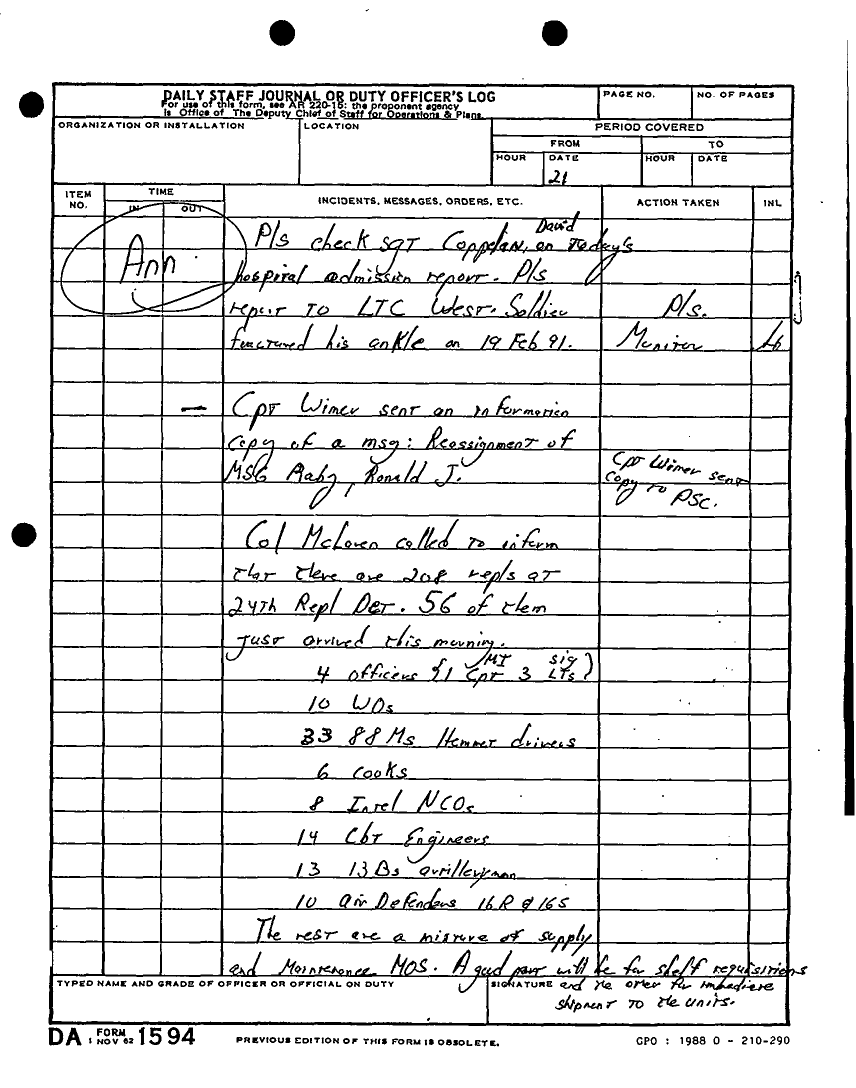 DAILY STAFF JOURNAL OR DUTY OFFICER'S LOG
For use of this form, see AR 220-15: the proponent agency
is Office of The Deputy Chief of Staff for Operations & Plans.
PAGE NO.
NO. OF PAGES
ORGANIZATION OR INSTALLATION
LOCATION
PERIOD COVERED
FROM
TO
HOUR
DATE
HOUR
DATE
21
ITEM NO.
TIME
IN
OUT
INCIDENTS, MESSAGES, ORDERS, ETC.
ACTION TAKEN
INL
Ann
David
P/s check SGT Coppelan, on Today's
hospital admission report. P/s
report to LTC West. Soldier
P/s.
fractured his ankle on 19 Feb 91.
Monitor
— Cpt Wimer sent an information
copy of a msg: Reassignment of
MSG Raby, Ronald J.
Cpt Wimer sent
copy to PSC.
Col McLaren called to inform
that there are 208 repls at
24th Repl Det. 56 of them
just arrived this morning.
MI Sig
4 officers {1 Cpt 3 LTs}
10 WOs
33 88Ms Hemmet drivers
6 cooks
8 Intel NCOs
14 Cbt Engineers
13 13Bs artilleryman
10 air Defenders 16R & 16S
The rest are a mixture of supply
and Maintenance MOS. A good part will be for shelf requisitions
and the other for immediate
shipment to the units.
TYPED NAME AND GRADE OF OFFICER OR OFFICIAL ON DUTY
SIGNATURE
DA FORM 1594
1 NOV 62
PREVIOUS EDITION OF THIS FORM IS OBSOLETE.
GPO : 1988 O - 210-290